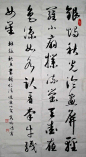 銀燭秋光冷畫屏輕
羅小扇撲流螢天階夜
色涼如水卧看牽牛織
女星